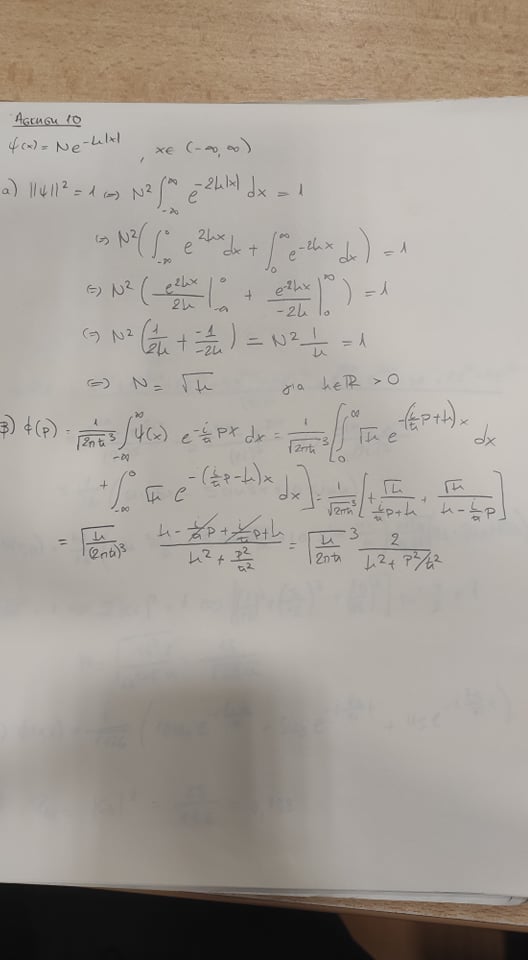 Άσκηση 10
ψ(x) = N e^{-k|x|} , x ∈ (-∞, ∞)
α) ||ψ||² = 1 ⇔ N² ∫_{-∞}^{∞} e^{-2k|x|} dx = 1
⇔ N² ( ∫_{-∞}^{0} e^{2kx} dx + ∫_{0}^{∞} e^{-2kx} dx ) = 1
⇔ N² ( e^{2kx}/2k |_{-∞}^{0} + e^{-2kx}/-2k |_{0}^{∞} ) = 1
⇔ N² ( 1/2k + -1/-2k ) = N² 1/k = 1
⇔ N = √k για k ∈ ℝ > 0
β) ϕ(p) = 1/√(2πħ)³ ∫_{-∞}^{∞} ψ(x) e^{-i/ħ px} dx = 1/√(2πħ)³ [ ∫_{0}^{∞} √k e^{-(i/ħ p + k)x} dx
+ ∫_{-∞}^{0} √k e^{-(i/ħ p - k)x} dx ] = 1/√(2πħ)³ [ + √k/(i/ħ p + k) + √k/(k - i/ħ p) ]
= √(k/(2πħ)³) (k - i/ħ p + i/ħ p + k)/(k² + p²/ħ²) = √(k/2πħ)³ 2/(k² + p²/ħ²)